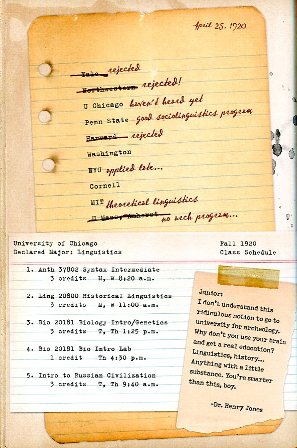 April 25, 1920
Yale rejected
Northwestern rejected!
U Chicago haven't heard yet
Penn State good sociolinguistics program
Harvard rejected
Washington
NYU applied late...
Cornell
MIT theoretical linguistics
U Mass/Amherst no arch program...
University of Chicago
Declared Major: Linguistics
Fall 1920
Class Schedule
1. Anth 37802 Syntax Intermediate
3 credits M, W 8:20 a.m.
2. Ling 20800 Historical Linguistics
3 credits M, W 11:00 a.m.
3. Bio 20181 Biology Intro/Genetics
3 credits T, Th 1:25 p.m.
4. Bio 20151 Bio Intro Lab
1 credit Th 4:30 p.m.
5. Intro to Russian Civilization
3 credits T, Th 9:40 a.m.
Junior:
I don't understand this
ridiculous notion to go to
university for archeology.
Why don't you use your brain
and get a real education?
Linguistics, history...
Anything with a little
substance. You're smarter
than this, boy.
-Dr. Henry Jones